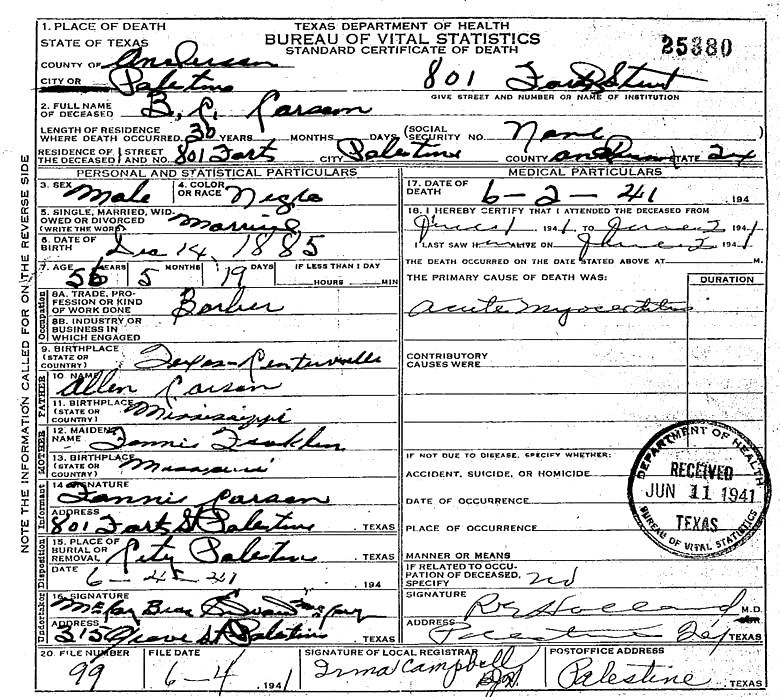 1. PLACE OF DEATH
STATE OF TEXAS
COUNTY OF Anderson
CITY OR Palestine
TEXAS DEPARTMENT OF HEALTH
BUREAU OF VITAL STATISTICS
STANDARD CERTIFICATE OF DEATH
25380
801 Fort Street
GIVE STREET AND NUMBER OR NAME OF INSTITUTION
2. FULL NAME OF DECEASED B. C. Carson
LENGTH OF RESIDENCE WHERE DEATH OCCURRED 36 YEARS MONTHS DAYS (SOCIAL SECURITY NO. None )
RESIDENCE OF THE DECEASED { STREET AND NO. 801 Fort CITY Palestine COUNTY Anderson STATE Tex
NOTE THE INFORMATION CALLED FOR ON THE REVERSE SIDE
PERSONAL AND STATISTICAL PARTICULARS
3. SEX Male 4. COLOR OR RACE Negro
5. SINGLE, MARRIED, WIDOWED OR DIVORCED (WRITE THE WORD) Married
6. DATE OF BIRTH Dec 14, 1885
7. AGE 55 YEARS 5 MONTHS 19 DAYS IF LESS THAN 1 DAY HOURS MIN
Occupation
8A. TRADE, PROFESSION OR KIND OF WORK DONE Barber
8B. INDUSTRY OR BUSINESS IN WHICH ENGAGED
9. BIRTHPLACE (STATE OR COUNTRY) Texas-Centerville
FATHER
10. NAME Allen Carson
11. BIRTHPLACE (STATE OR COUNTRY) Mississippi
MOTHER
12. MAIDEN NAME Fannie
13. BIRTHPLACE (STATE OR COUNTRY) Missouri
Informant
14 SIGNATURE Fannie Carson
ADDRESS 801 Fort St Palestine TEXAS
Disposition
15. PLACE OF BURIAL OR REMOVAL City Palestine TEXAS
DATE 6-4-41 .194
Undertaker
16. SIGNATURE
ADDRESS 315 St Palestine TEXAS
MEDICAL PARTICULARS
17. DATE OF DEATH 6-2-41 .194
18. I HEREBY CERTIFY THAT I ATTENDED THE DECEASED FROM
June 1 .1941 TO June 2 .1941
I LAST SAW him ALIVE ON June 2 .1941
THE DEATH OCCURRED ON THE DATE STATED ABOVE AT M.
THE PRIMARY CAUSE OF DEATH WAS: DURATION
Acute Myocarditis
CONTRIBUTORY CAUSES WERE
IF NOT DUE TO DISEASE, SPECIFY WHETHER:
ACCIDENT, SUICIDE, OR HOMICIDE
DATE OF OCCURRENCE
PLACE OF OCCURRENCE
MANNER OR MEANS
IF RELATED TO OCCUPATION OF DECEASED, SPECIFY no
SIGNATURE Holland M.D.
ADDRESS Palestine Tex TEXAS
DEPARTMENT OF HEALTH
RECEIVED
JUN 11 1941
TEXAS
BUREAU OF VITAL STATISTICS
20. FILE NUMBER 99
FILE DATE 6-4 .1941
SIGNATURE OF LOCAL REGISTRAR Irma Campbell
POSTOFFICE ADDRESS Palestine TEXAS